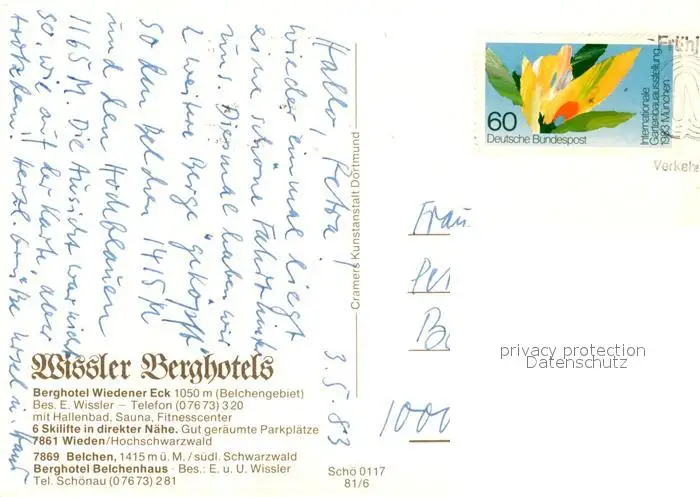 Hallo, Petra!
wieder einmal liegt
eine schöne Fahrt hinter
uns. Diesmal haben wir
2 weitere Berge "geköpft"
So den Belchen 1415 M
und den Hochblauen
1165 M. Die Aussicht war nicht
so, wie auf der Karte aber
trotzdem!! Herzl. Grüße Ursel u.
3.5.83
Wissler Berghotels
Berghotel Wiedener Eck 1050 m (Belchengebiet)
Bes. E. Wissler – Telefon (0 76 73) 3 20
mit Hallenbad, Sauna, Fitnesscenter
6 Skilifte in direkter Nähe. Gut geräumte Parkplätze
7861 Wieden/Hochschwarzwald
7869 Belchen, 1415 m ü. M./südl. Schwarzwald
Berghotel Belchenhaus · Bes.: E. u. U. Wissler
Tel. Schönau (0 76 73) 2 81
Schö 0117
81/6
Cramers Kunstanstalt Dortmund
60
Deutsche Bundespost
Internationale
Gartenbauausstellung
1983 München
Frühj
Verkehr
Frau
Pe
Be
1000
privacy protection
Datenschutz